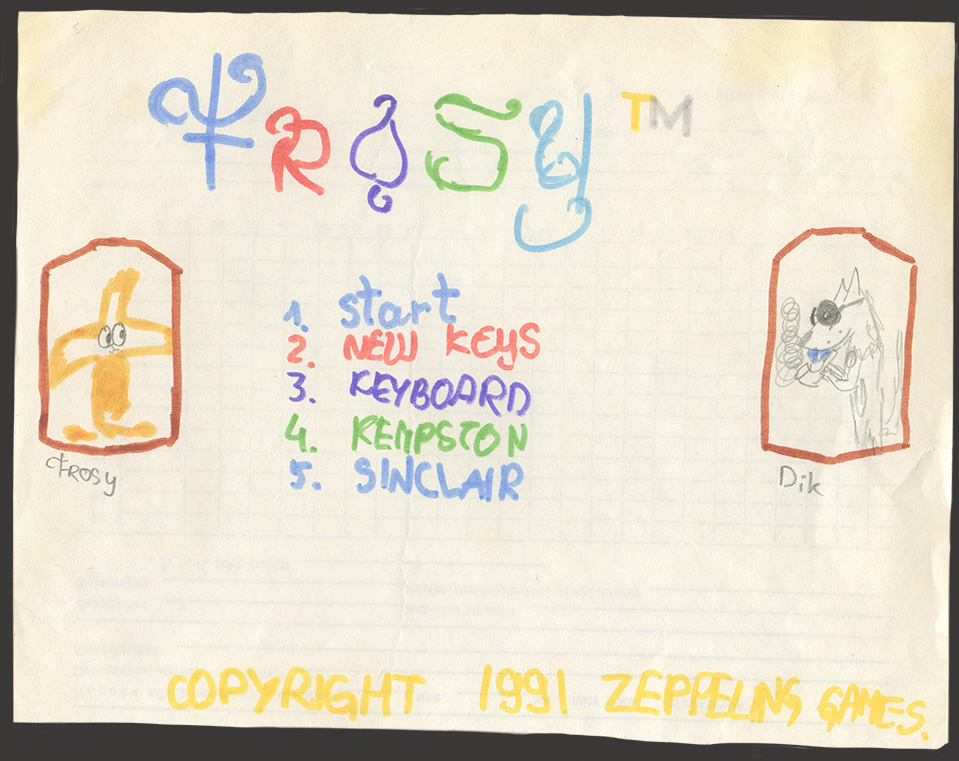 FROSY TM
1. start
2. NEW KEYS
3. KEYBOARD
4. KEMPSTON
5. SINCLAIR
FROSY
Dik
COPYRIGHT 1991 ZEPPELING GAMES.